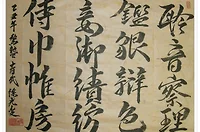 聆音察理
鑑貌辯色
妾御績紡
侍巾帷房